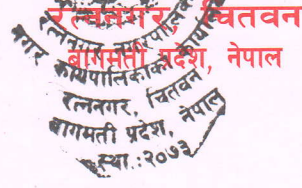 रत्ननगर, चितवन
बागमती प्रदेश, नेपाल
रत्ननगर नगरपालिका
नगर कार्यपालिकाको कार्यालय
रत्ननगर, चितवन
बागमती प्रदेश, नेपाल
स्था.:२०७३